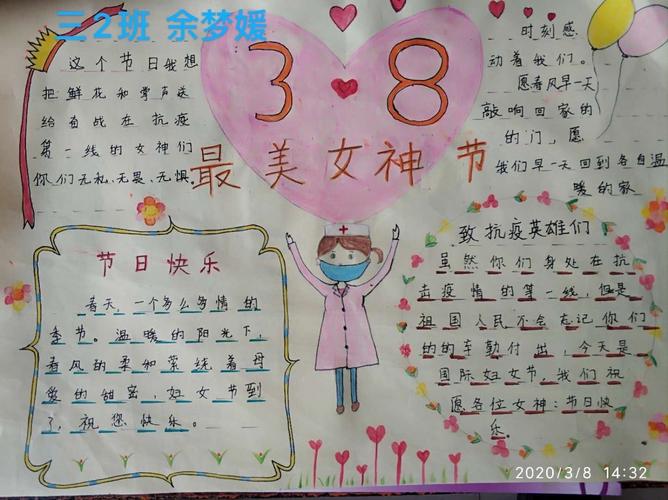 三2班 余梦媛
3 8
最美女神节
这个节日我想
把鲜花和掌声送
给奋战在抗疫
第一线的女神们
你们无私、无畏、无惧.
时刻感
动着我们。
愿春风早一天
敲响回家的
的门，愿
我们早一天回到各自温
暖的家
节日快乐
春天，一个多么多情的
季节。温暖的阳光下，
春风的柔和萦绕着母
爱的甜蜜，妇女节到
了，祝您快乐。
致抗疫英雄们！
虽然你们身处在抗
击疫情的第一线，但是
祖国人民不会忘记你们
的的辛勤付出，今天是
国际妇女节，我们祝
愿各位女神：节日快
乐。
2020/3/8 14:32